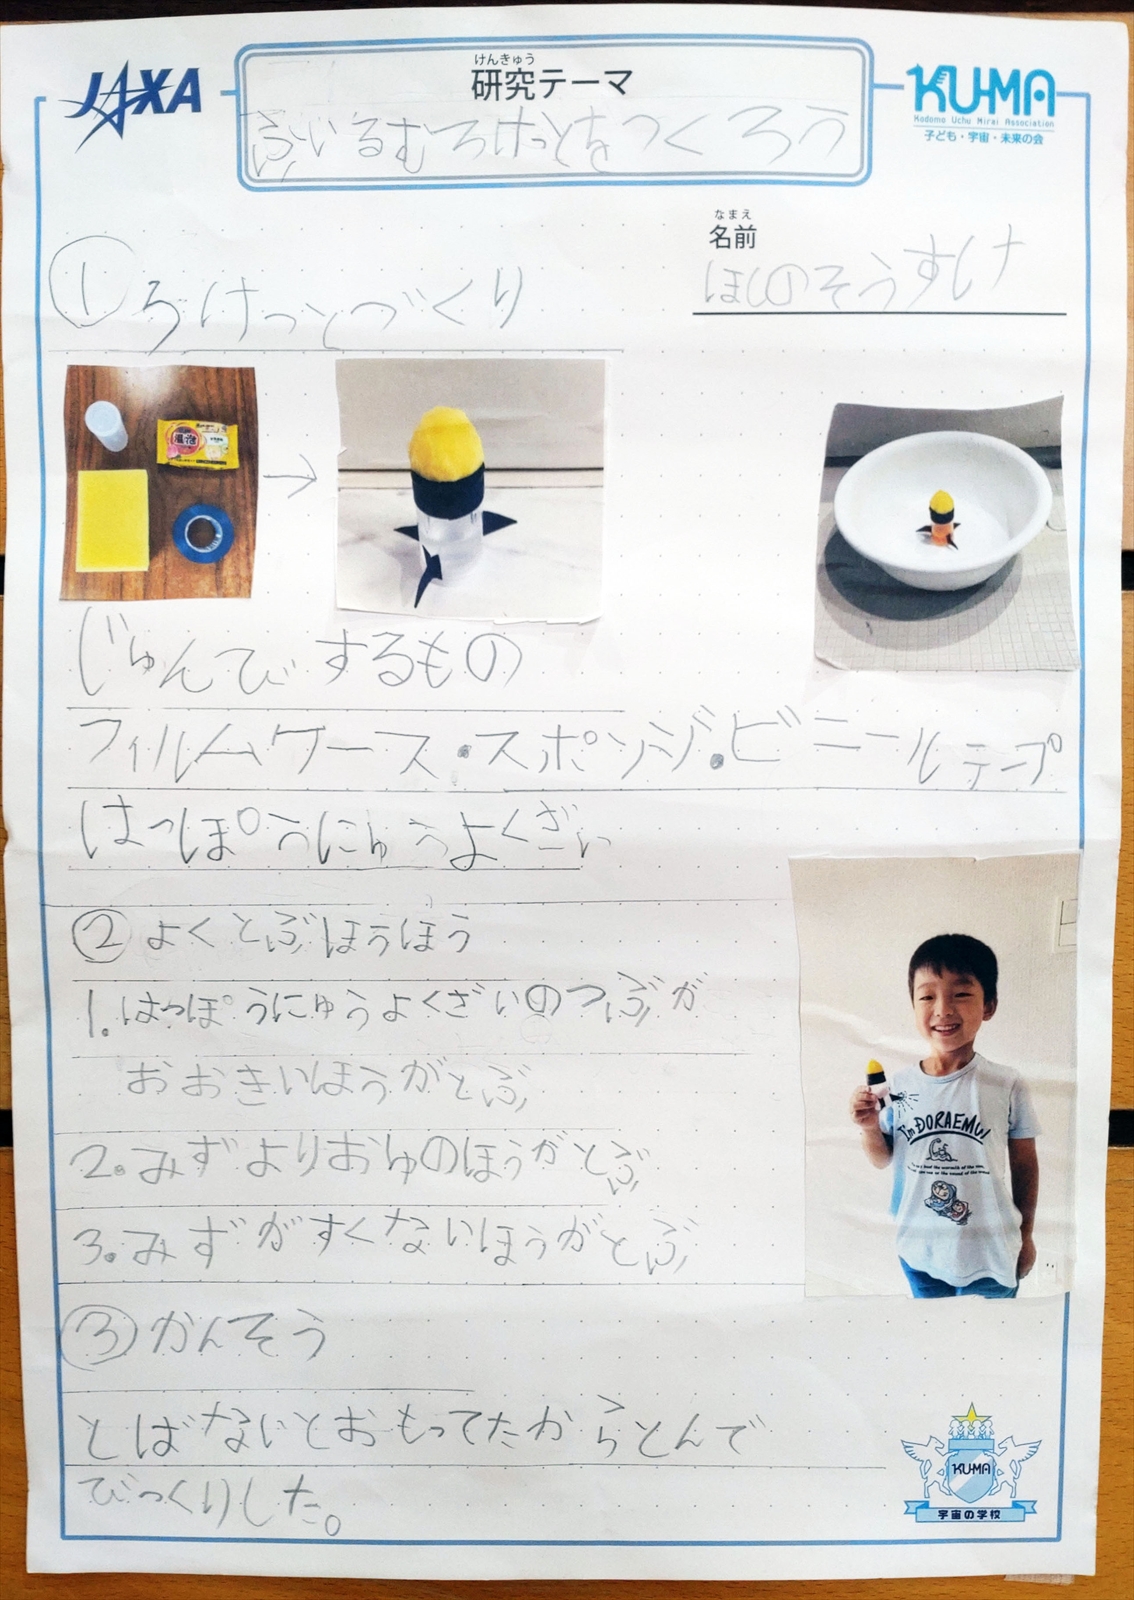 JAXA
けんきゅう
研究テーマ
ふぃるむろけっとをつくろう
KU-MA
Kodomo Uchu Mirai Association
子ども・宇宙・未来の会
なまえ
名前
ほしのそうすけ
① ろけっとづくり
温泡
じゅんびするもの
フィルムケース・スポンジ・ビニールテープ
はっぽうにゅうよくざい
② よくとぶほうほう
1. はっぽうにゅうよくざいのつぶが
おおきいほうがとぶ
2. みずよりおゆのほうがとぶ
3. みずがすくないほうがとぶ
I'm DORAEMON
③ かんそう
とばないとおもってたからとんで
びっくりした。
KU-MA
宇宙の学校